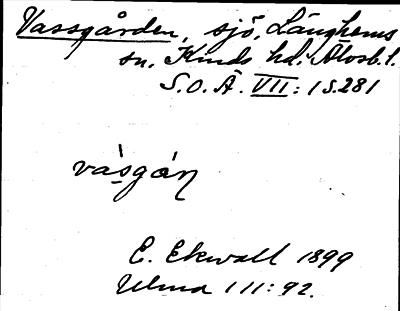 Vassgården, sjö, Länghems
sn, Kinds hd, Älvsb. l.
S.O.Ä. VII: 1 s.281
vàsgán
E. Ekwall 1899
Ulma 111:92.